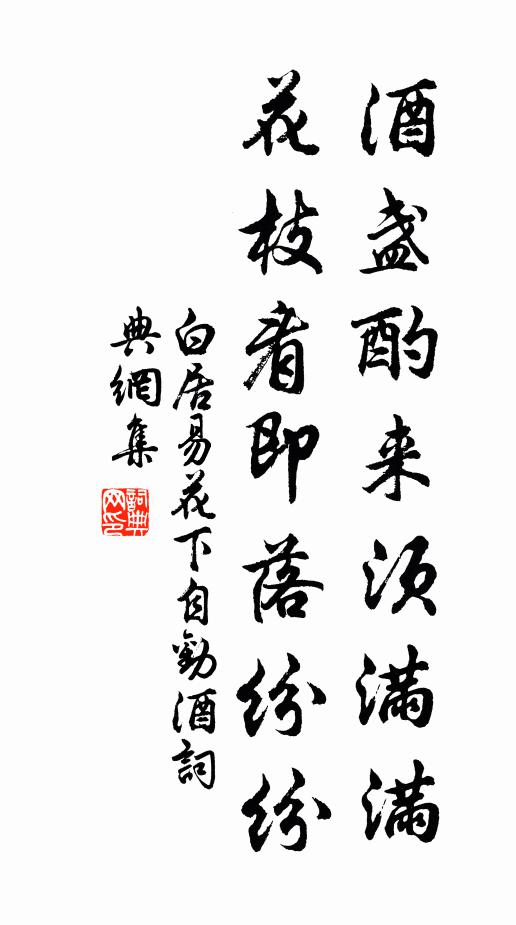 酒盏酌来须满满
花枝看即落纷纷
白居易花下自勸酒詞
典網集
詞典网印